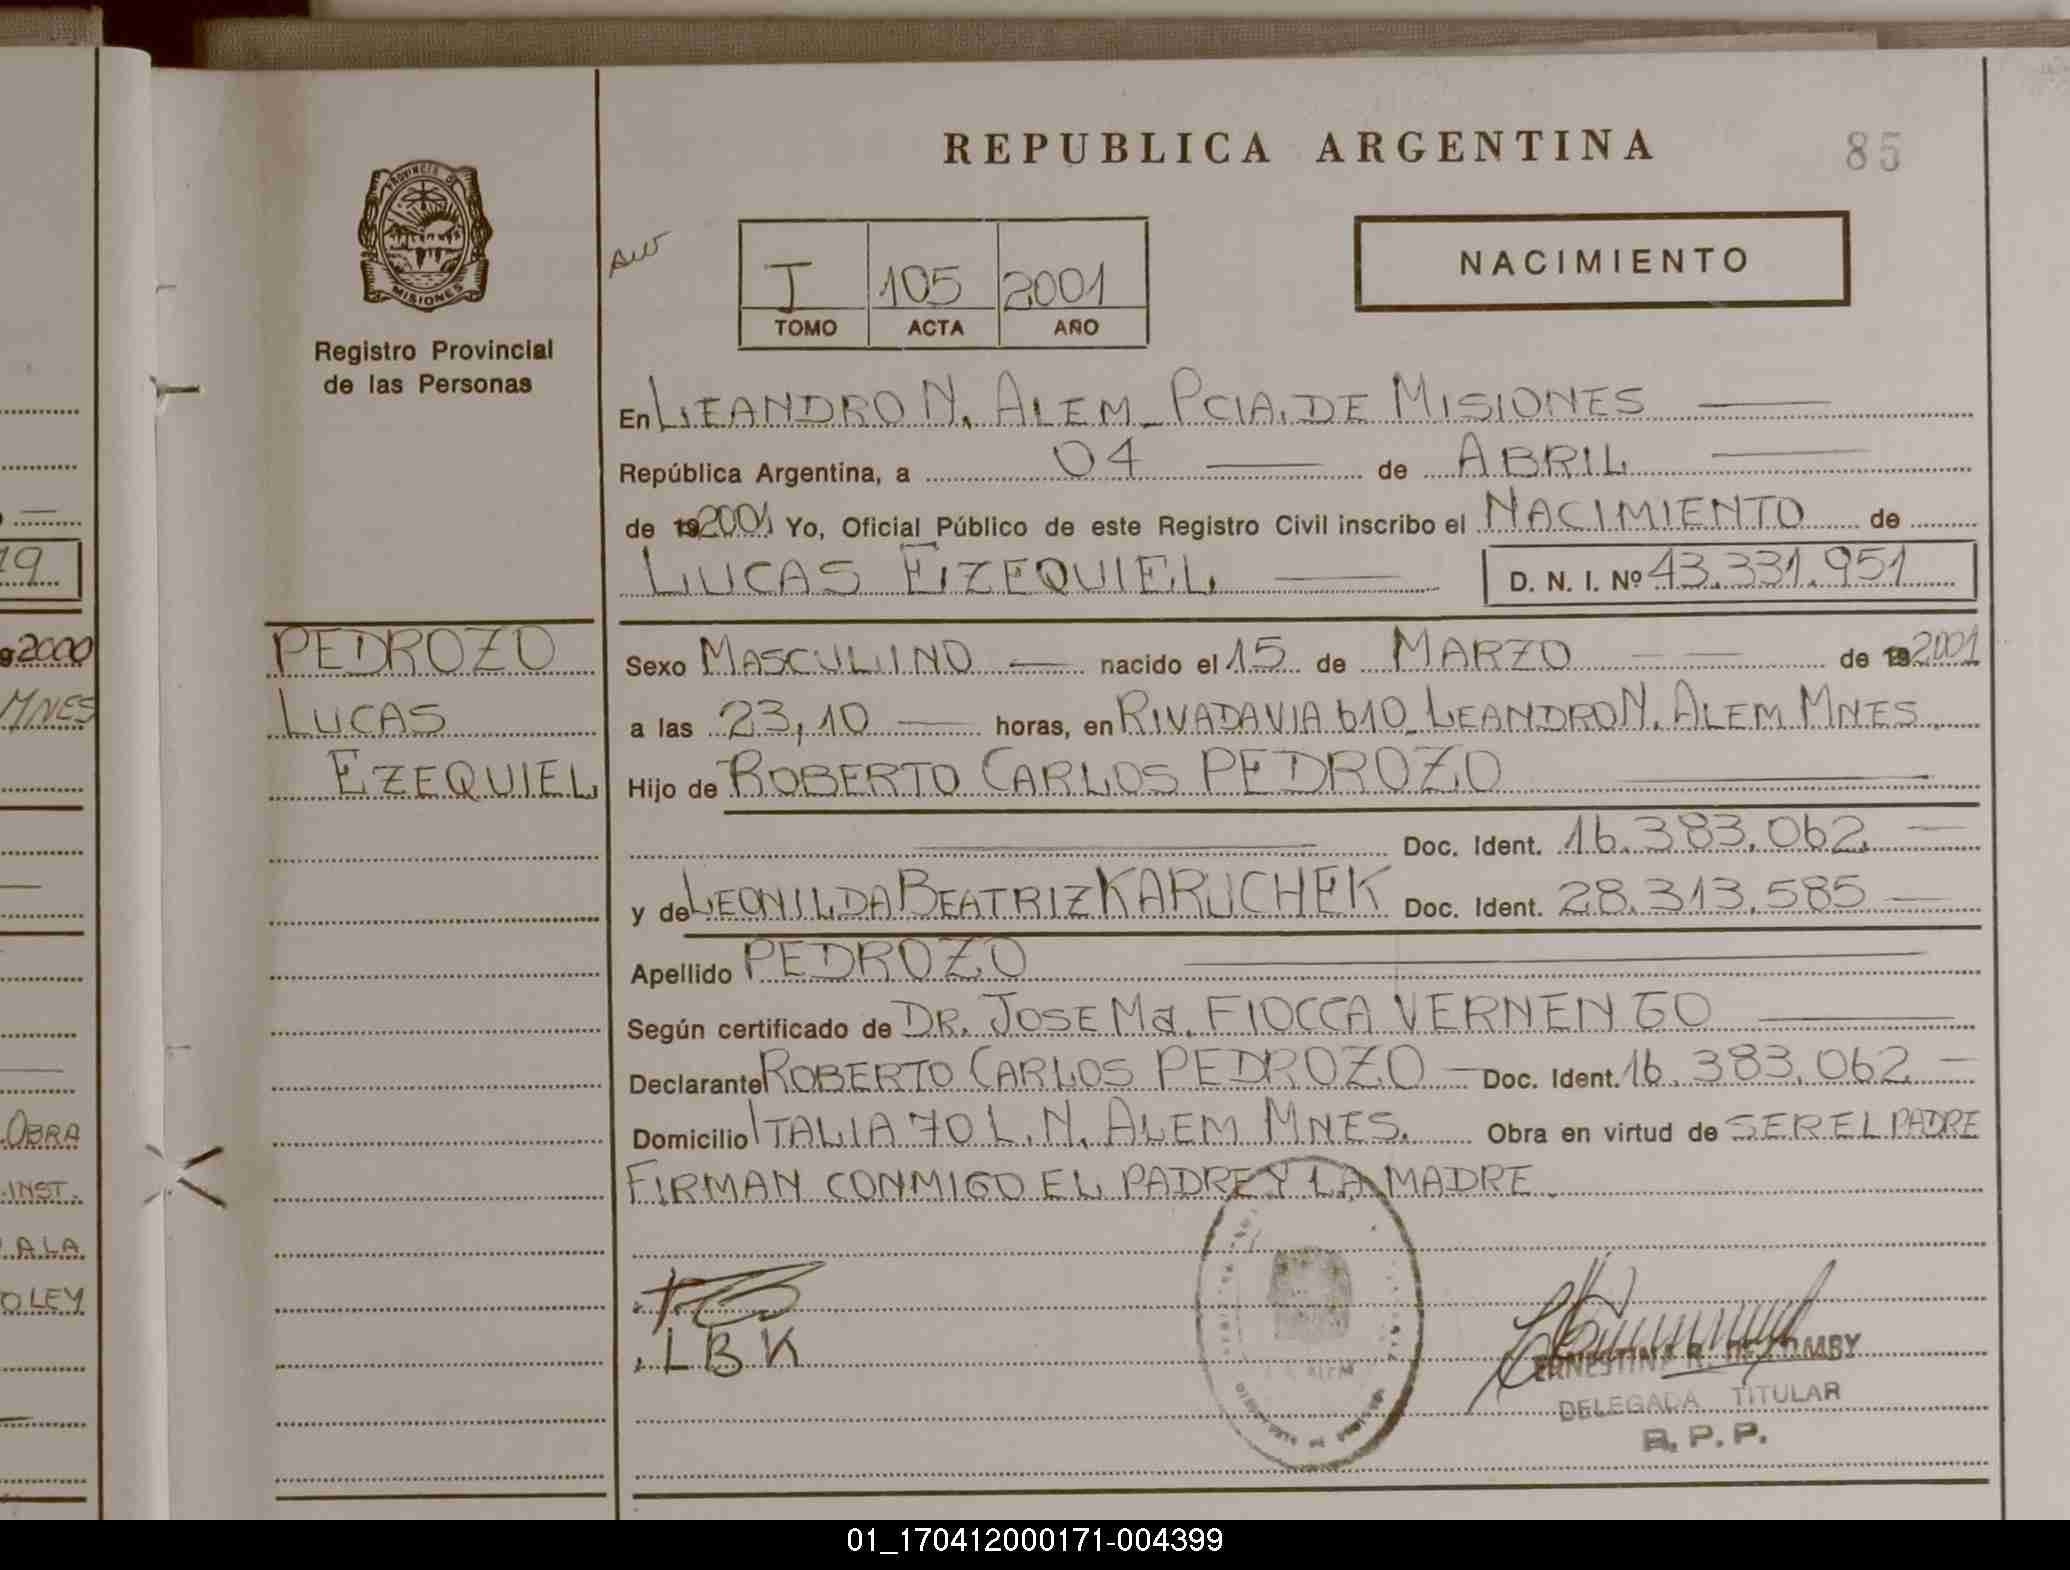 REPUBLICA ARGENTINA
85
PROVINCIA DE
MISIONES
Registro Provincial
de las Personas
I 105 2001
TOMO ACTA AÑO
NACIMIENTO
En LEANDRO N. ALEM_PCIA. DE MISIONES
República Argentina, a 04 de ABRIL
de 192001 Yo, Oficial Público de este Registro Civil inscribo el NACIMIENTO de
LUCAS EZEQUIEL
D. N. I. Nº 43.331.951
PEDROZO
LUCAS
EZEQUIEL
Sexo MASCULINO nacido el 15 de MARZO de 192001
a las 23,10 horas, en RIVADAVIA 610_LEANDRO N. ALEM MNES.
Hijo de ROBERTO CARLOS PEDROZO
Doc. Ident. 16.383.062
y de LEONILDA BEATRIZ KARUCHEK Doc. Ident. 28.313.585
Apellido PEDROZO
Según certificado de DR. JOSE Ma. FIOCCA VERNENGO
Declarante ROBERTO CARLOS PEDROZO Doc. Ident. 16.383.062
Domicilio ITALIA 70 L.N. ALEM MNES. Obra en virtud de SER EL PADRE
FIRMAN CONMIGO EL PADRE Y LA MADRE.
LBK
ERNESTINA R. DE
DELEGADA TITULAR
R. P. P.
19
2000
MNES
OBRA
INST.
A LA
LEY
01_170412000171-004399